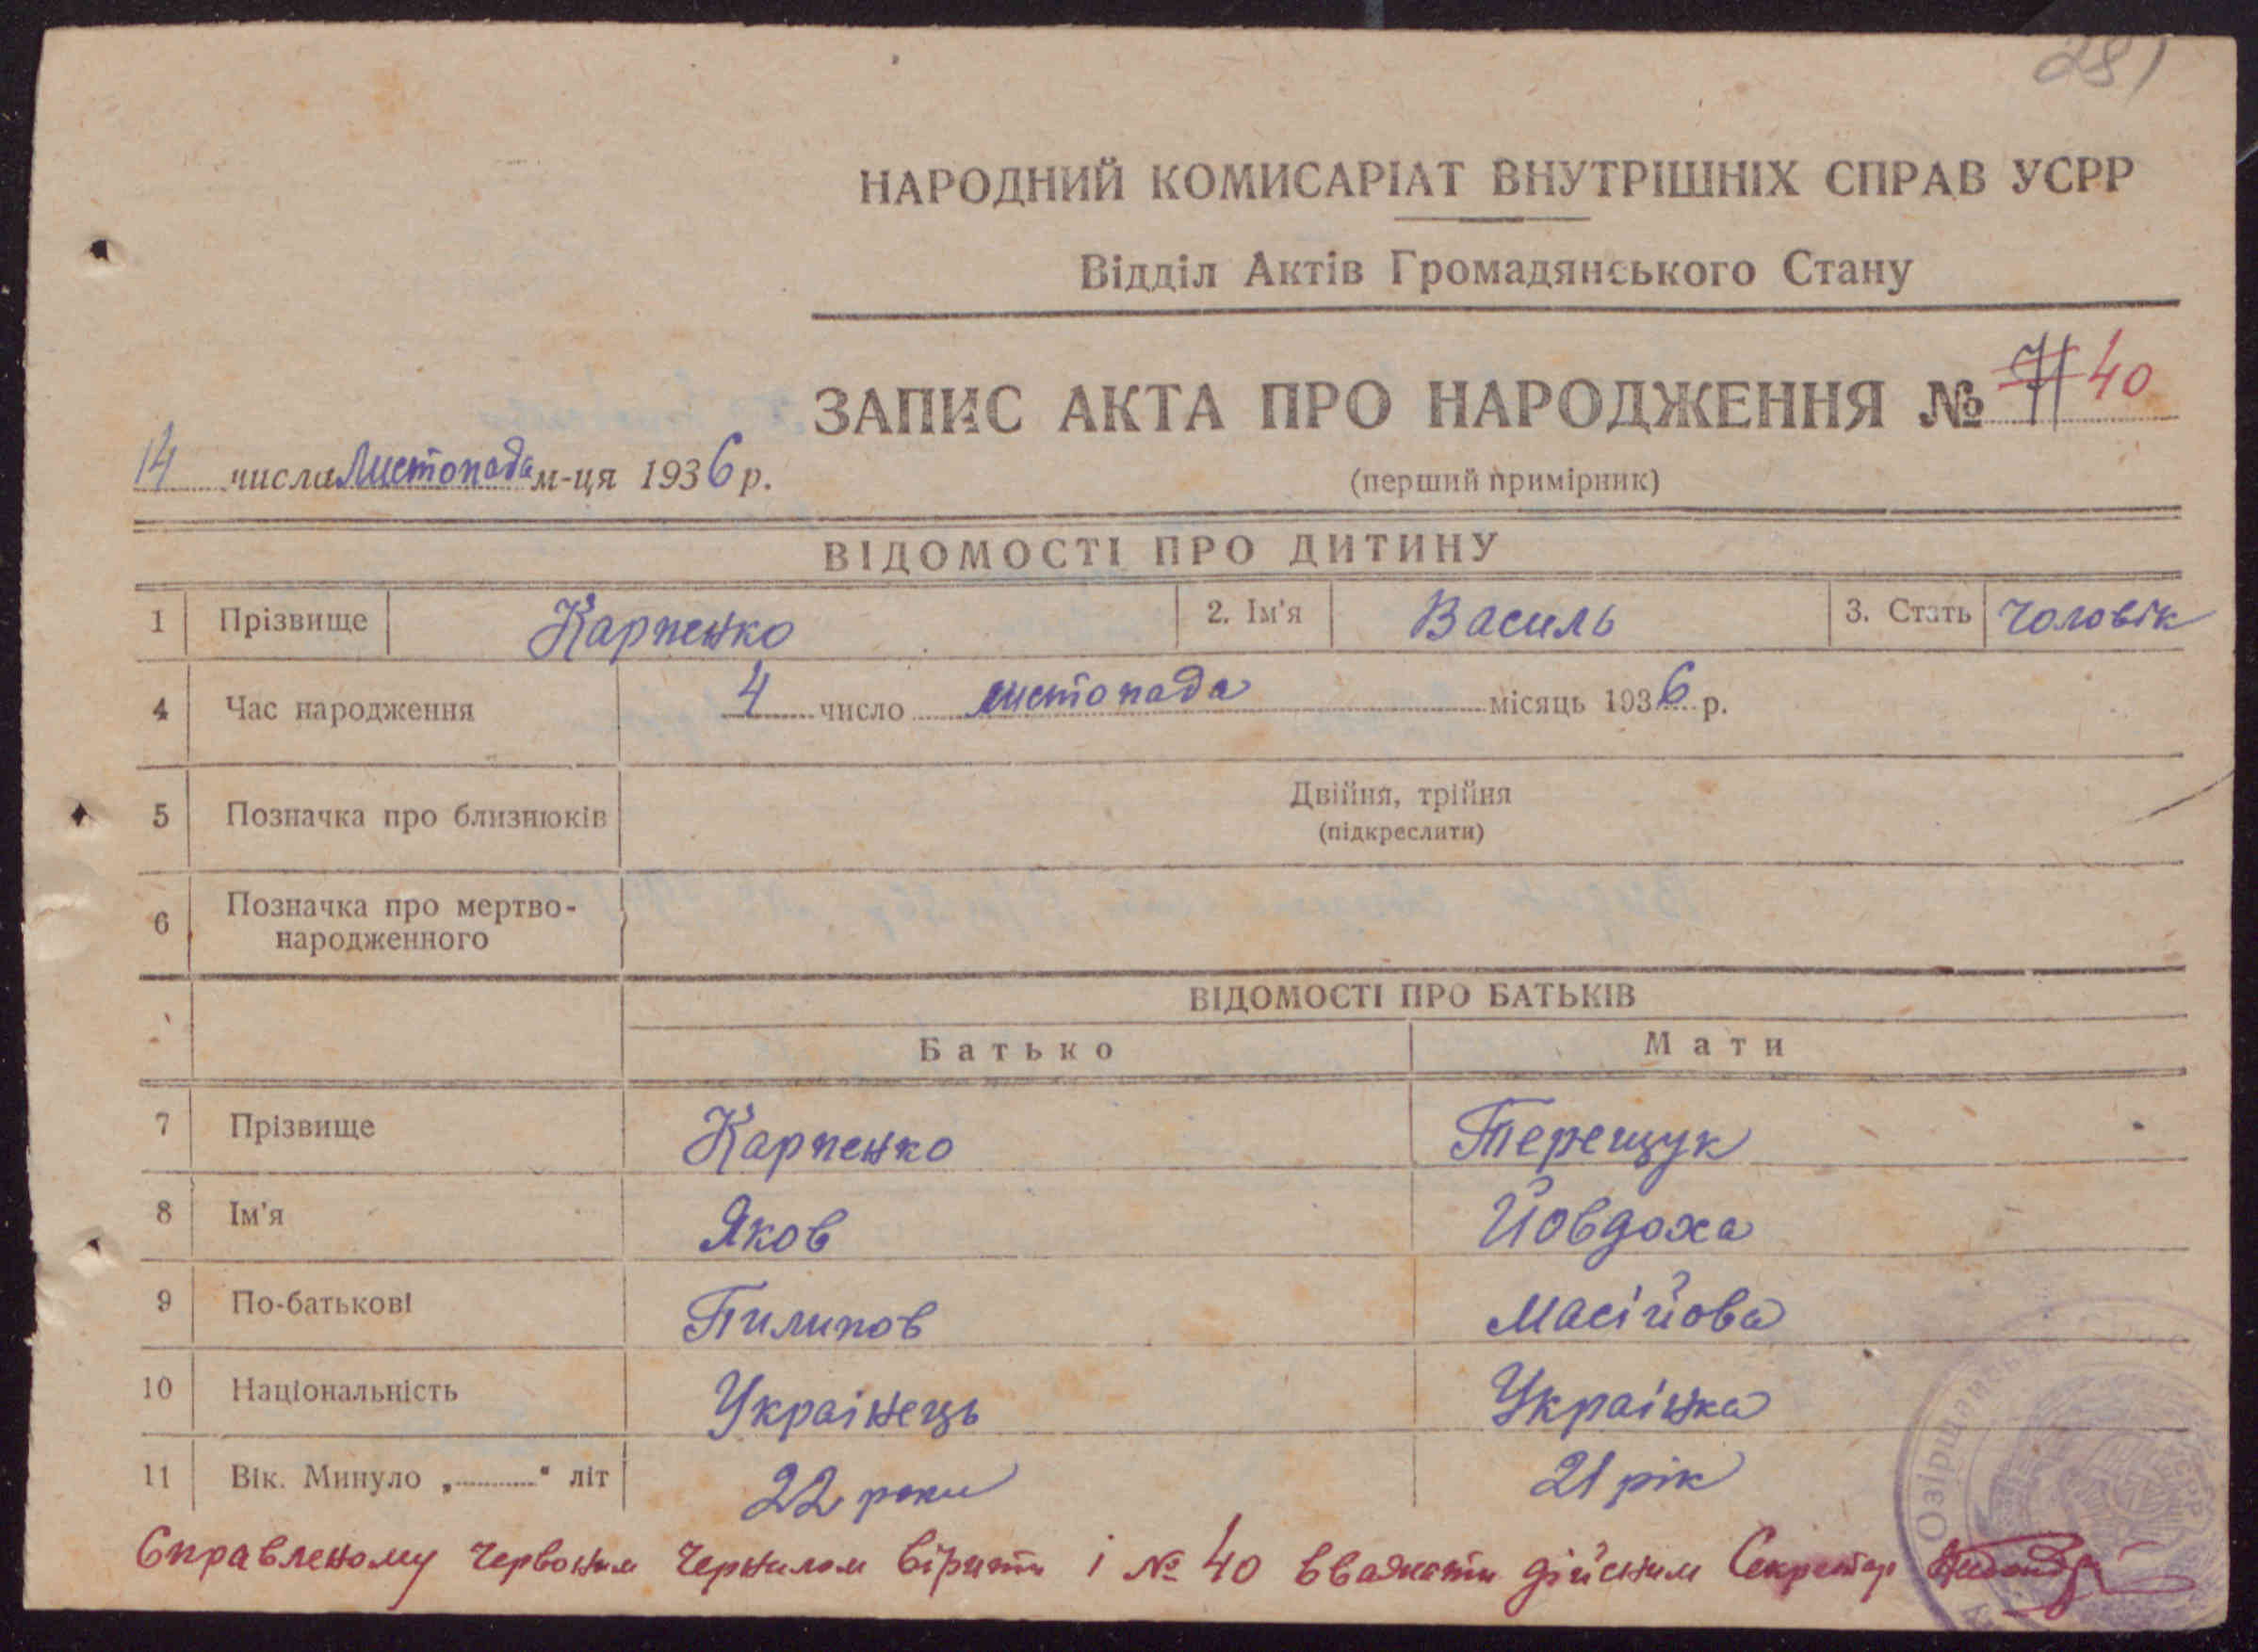 281
НАРОДНИЙ КОМИСАРІАТ ВНУТРІШНІХ СПРАВ УСРР
Відділ Актів Громадянського Стану
ЗАПИС АКТА ПРО НАРОДЖЕННЯ № 71 40
14 числа Листопада м-ця 1936 р.
(перший примірник)
ВІДОМОСТІ ПРО ДИТИНУ
1 Прізвище Карпенко 2. Ім'я Василь 3. Стать чоловік
4 Час народження 4 число листопада місяць 1936 р.
5 Позначка про близнюків Двійня, трійня
(підкреслити)
6 Позначка про мертво-
народженного
ВІДОМОСТІ ПРО БАТЬКІВ
Батько Мати
7 Прізвище Карпенко Терещук
8 Ім'я Яков Йовдоха
9 По-батькові Пилипов Масійова
10 Національність Українець Українка
11 Вік. Минуло „ “ літ 22 роки 21 рік
Справленому червоним чернилом вірити і № 40 вважати дійсним Секретар